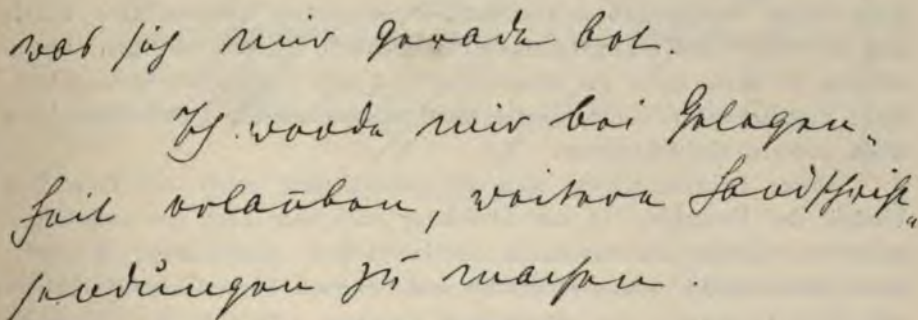 was sich mir gerade bot.
Ich werde mir bei Gelegen-
heit erlauben, weitere Handschrift-
sendungen zu machen.